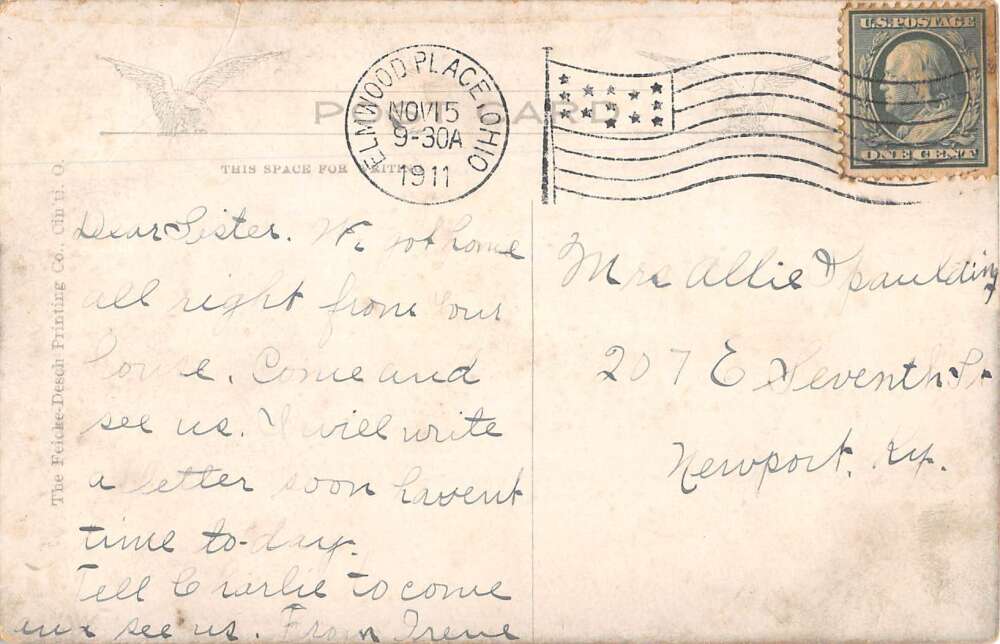 U.S. POSTAGE
ONE CENT
ELMWOOD PLACE, OHIO
NOV 15
9-30A
1911
POST CARD
THIS SPACE FOR WRITING
The Feicke-Desch Printing Co., Cin'ti, O.
Dear Sister. We got home
all right from your
house. Come and
see us. I will write
a letter soon havent
time to-day.
Tell Charlie to come
and see us. From Irene
Mrs Allie Spaulding
207 E Seventh St
Newport, Ky.